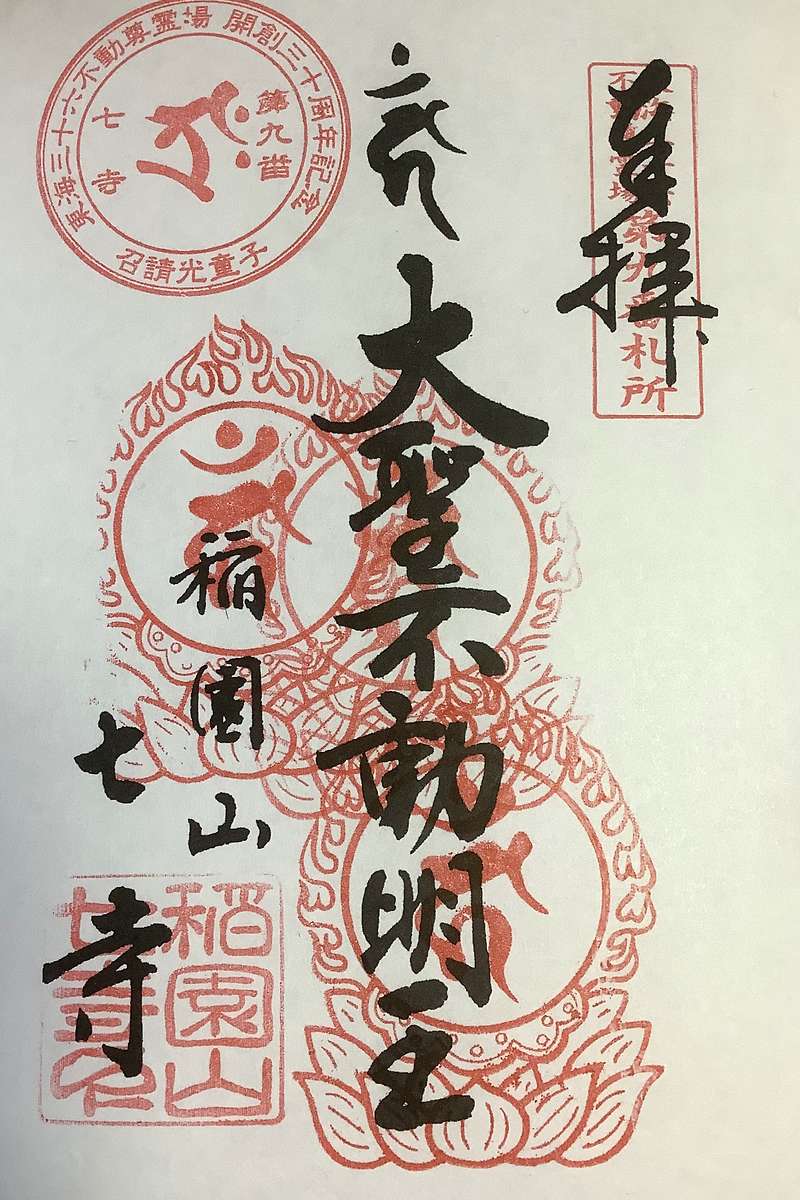 奉拝
第九番札所
大聖不動明王
稲園山
七寺
東海三十六不動尊霊場 開創三十周年記念
第九番
七寺
召請光童子
稲園山
七寺印